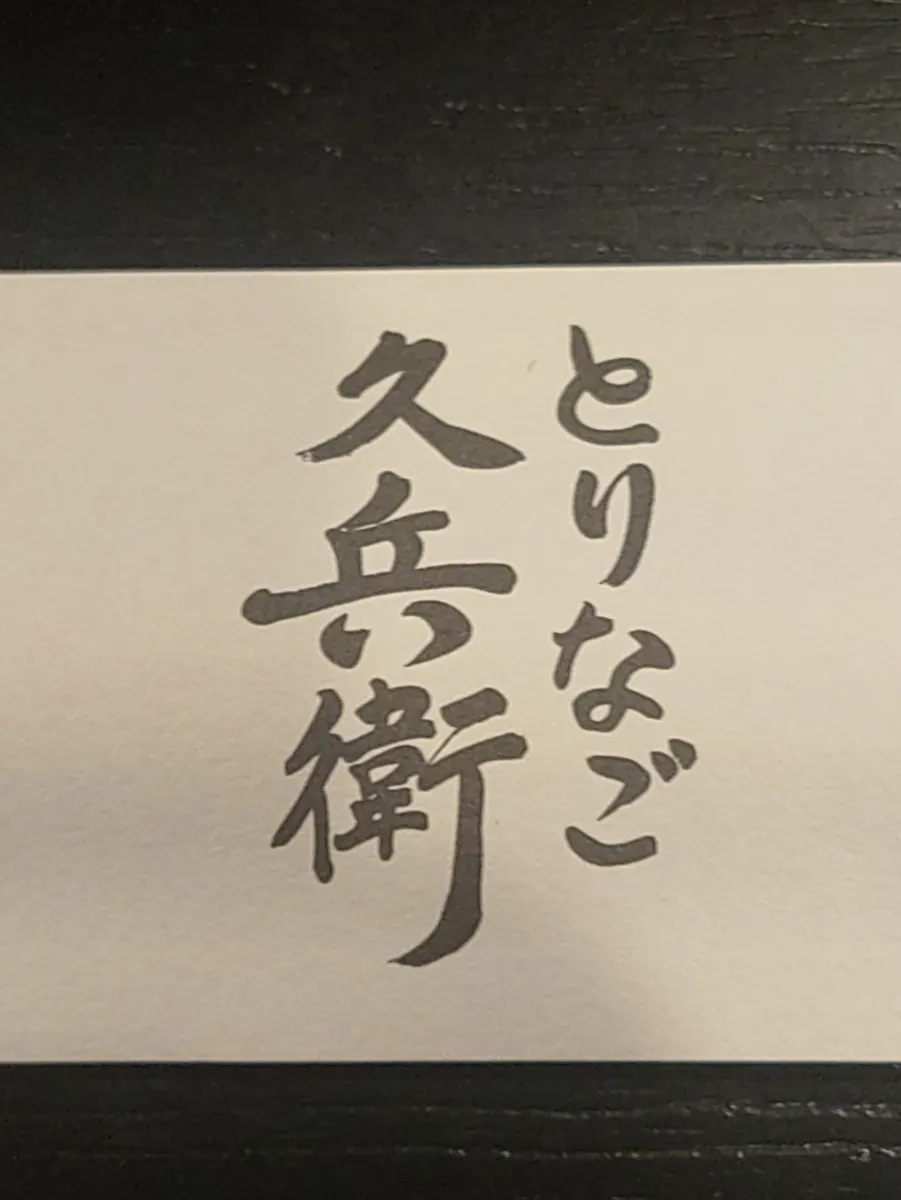 とりなご
久兵衛